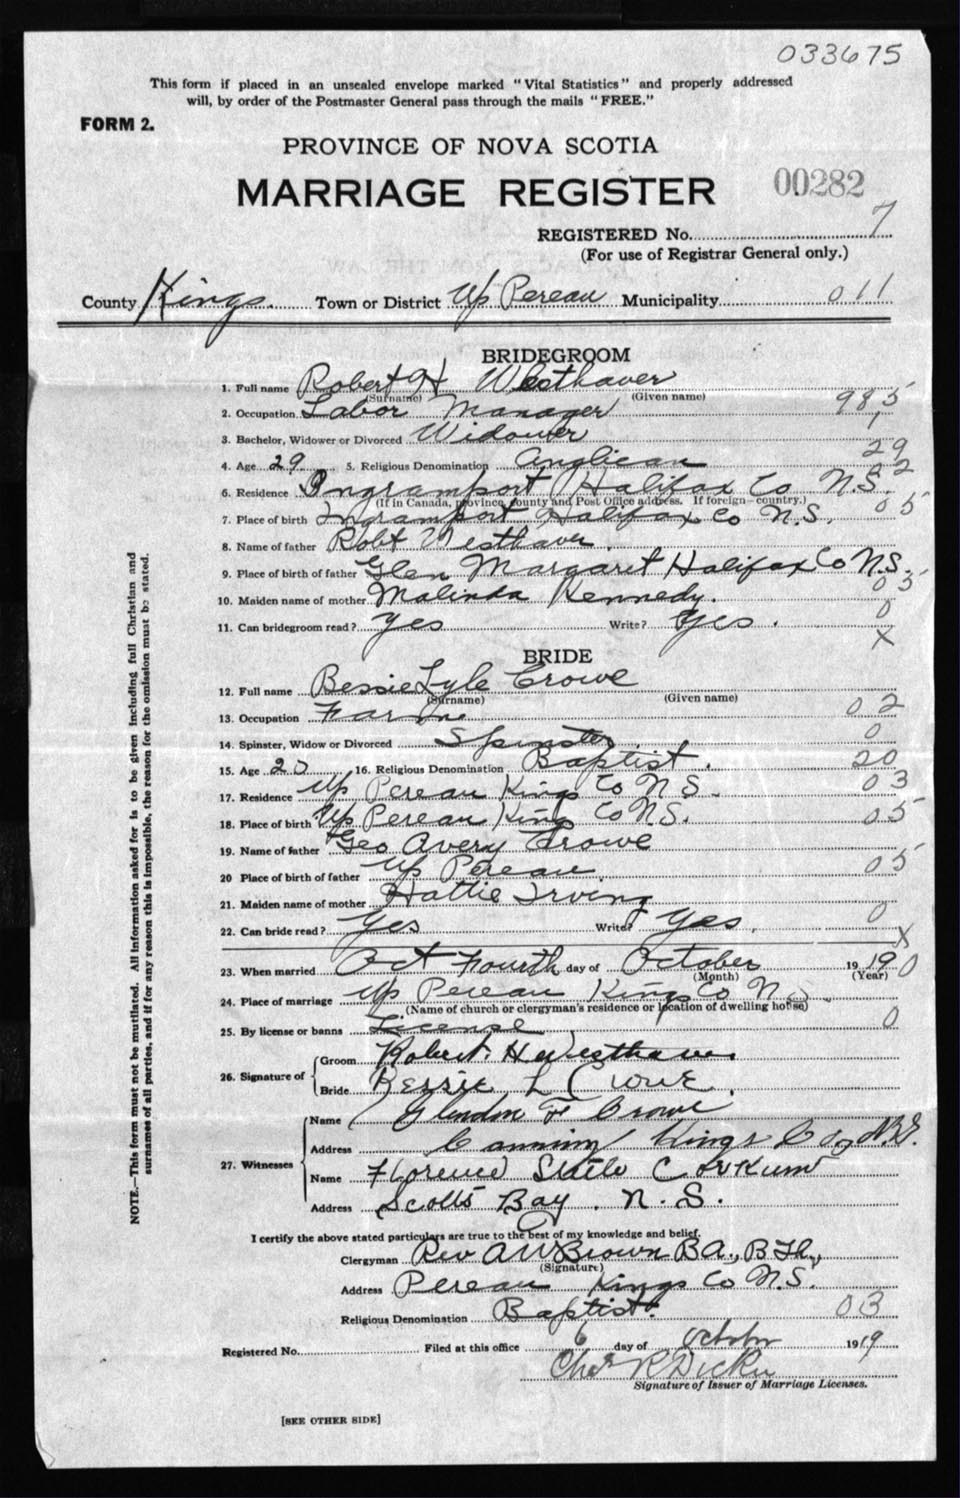 033675
This form if placed in an unsealed envelope marked "Vital Statistics" and properly addressed
will, by order of the Postmaster General pass through the mails "FREE."
FORM 2.
PROVINCE OF NOVA SCOTIA
MARRIAGE REGISTER 00282
REGISTERED No. 7
(For use of Registrar General only.)
County Kings Town or District Up Pereau Municipality 011
BRIDEGROOM
1. Full name Robert H Westhaver
(Surname) (Given name)
2. Occupation Labor Manager 985
3. Bachelor, Widower or Divorced Widower 1
4. Age 29 5. Religious Denomination Anglican 29
6. Residence Ingramport Halifax Co N.S. 2
(If in Canada, province, county and Post Office address. If foreign—country.)
7. Place of birth Ingramport Halifax Co N.S. 05
8. Name of father Robt Westhaver.
9. Place of birth of father Glen Margaret Halifax Co N.S.
10. Maiden name of mother Malinda Kennedy. 05
11. Can bridegroom read? Yes Write? Yes. 0
X
BRIDE
12. Full name Bessie Lyle Crowe
(Surname) (Given name)
13. Occupation Farm 02
14. Spinster, Widow or Divorced Spinster 0
15. Age 20 16. Religious Denomination Baptist. 20
17. Residence Up Pereau Kings Co N.S. 03
18. Place of birth Up Pereau Kings Co N.S. 05
19. Name of father Geo Avery Crowe
20 Place of birth of father Up Pereau. 05
21. Maiden name of mother Hattie Irving
22. Can bride read? Yes Write? Yes. 0
X
23. When married Oct Fourth day of October 1919 0
(Month) (Year)
24. Place of marriage Up Pereau Kings Co N.S.
(Name of church or clergyman's residence or location of dwelling house)
25. By license or banns License 0
26. Signature of
Groom Robert H Westhaver
Bride Bessie L Crowe.
27. Witnesses
Name Glendon F Crowe
Address Canning Kings Co N.S.
Name Florence Corkum
Address Scotts Bay. N.S.
I certify the above stated particulars are true to the best of my knowledge and belief.
Clergyman Rev A W Brown B.A., B Th.,
(Signature)
Address Pereau Kings Co N.S.
Religious Denomination Baptist. 03
Registered No. Filed at this office 6 day of October 1919
Chas R Dickie
Signature of Issuer of Marriage Licenses.
[SEE OTHER SIDE]
NOTE.—This form must not be mutilated. All information asked for is to be given including full Christian and
surnames of all parties, and if for any reason this is impossible, the reason for the omission must be stated.